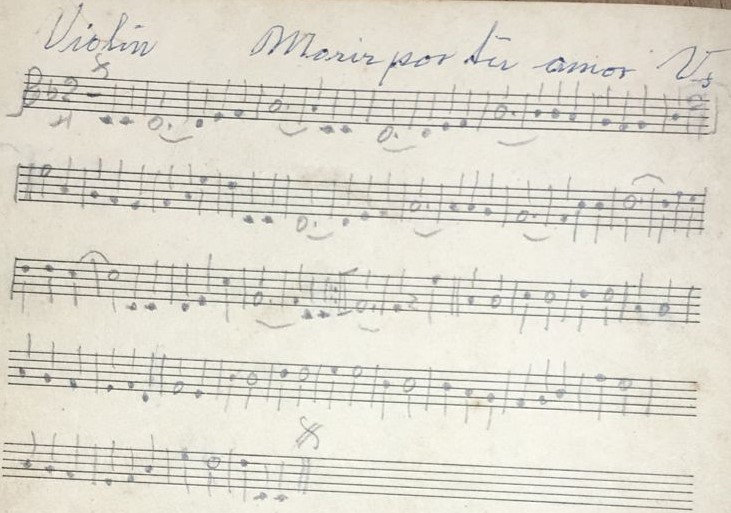 Violin Morir por tu amor Vs
2